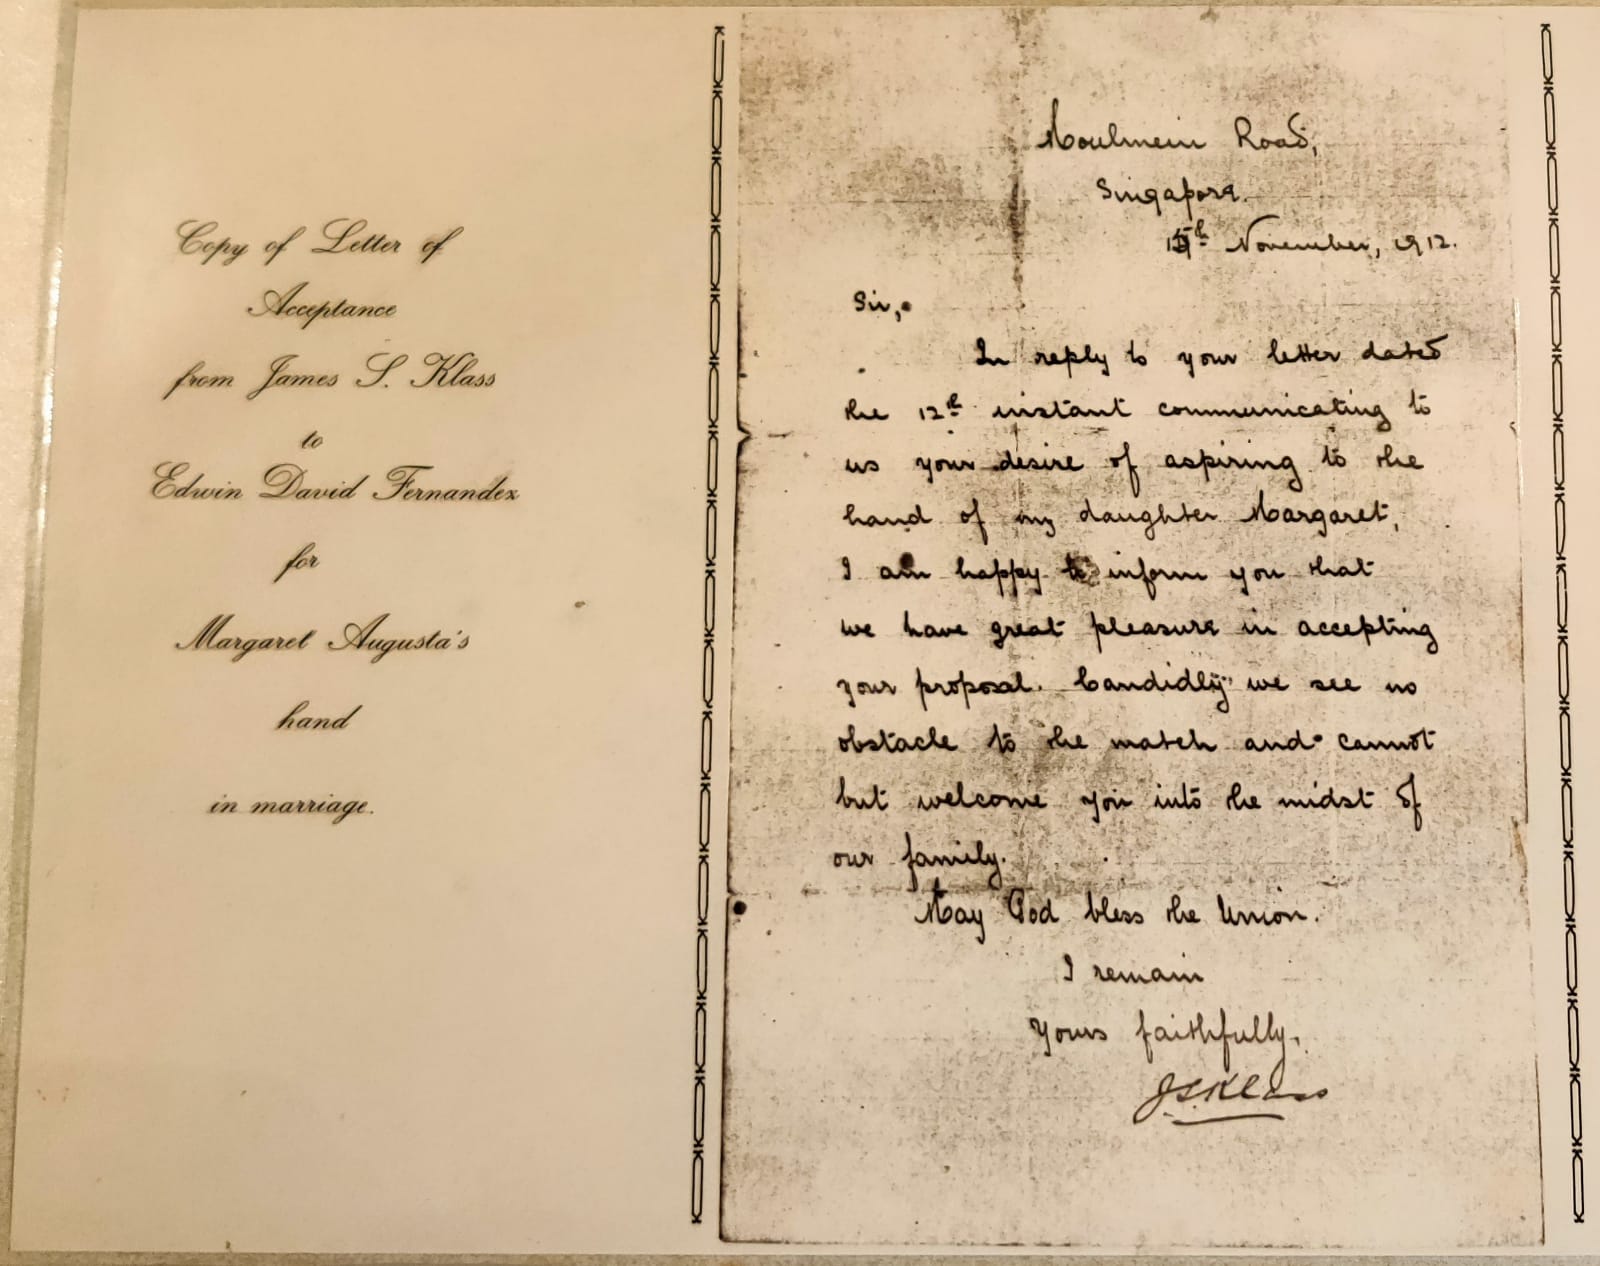 Copy of Letter of
Acceptance
from James S. Klass
to
Edwin David Fernandez
for
Margaret Augusta's
hand
in marriage.
Moulmein Road,
Singapore.
15th November, 1912.
Sir,
In reply to your letter dated
the 12th instant communicating to
us your desire of aspiring to the
hand of my daughter Margaret,
I am happy to inform you that
we have great pleasure in accepting
your proposal. Candidly we see no
obstacle to the match and cannot
but welcome you into the midst of
our family.
May God bless the Union.
I remain
Yours faithfully,
JSKlass